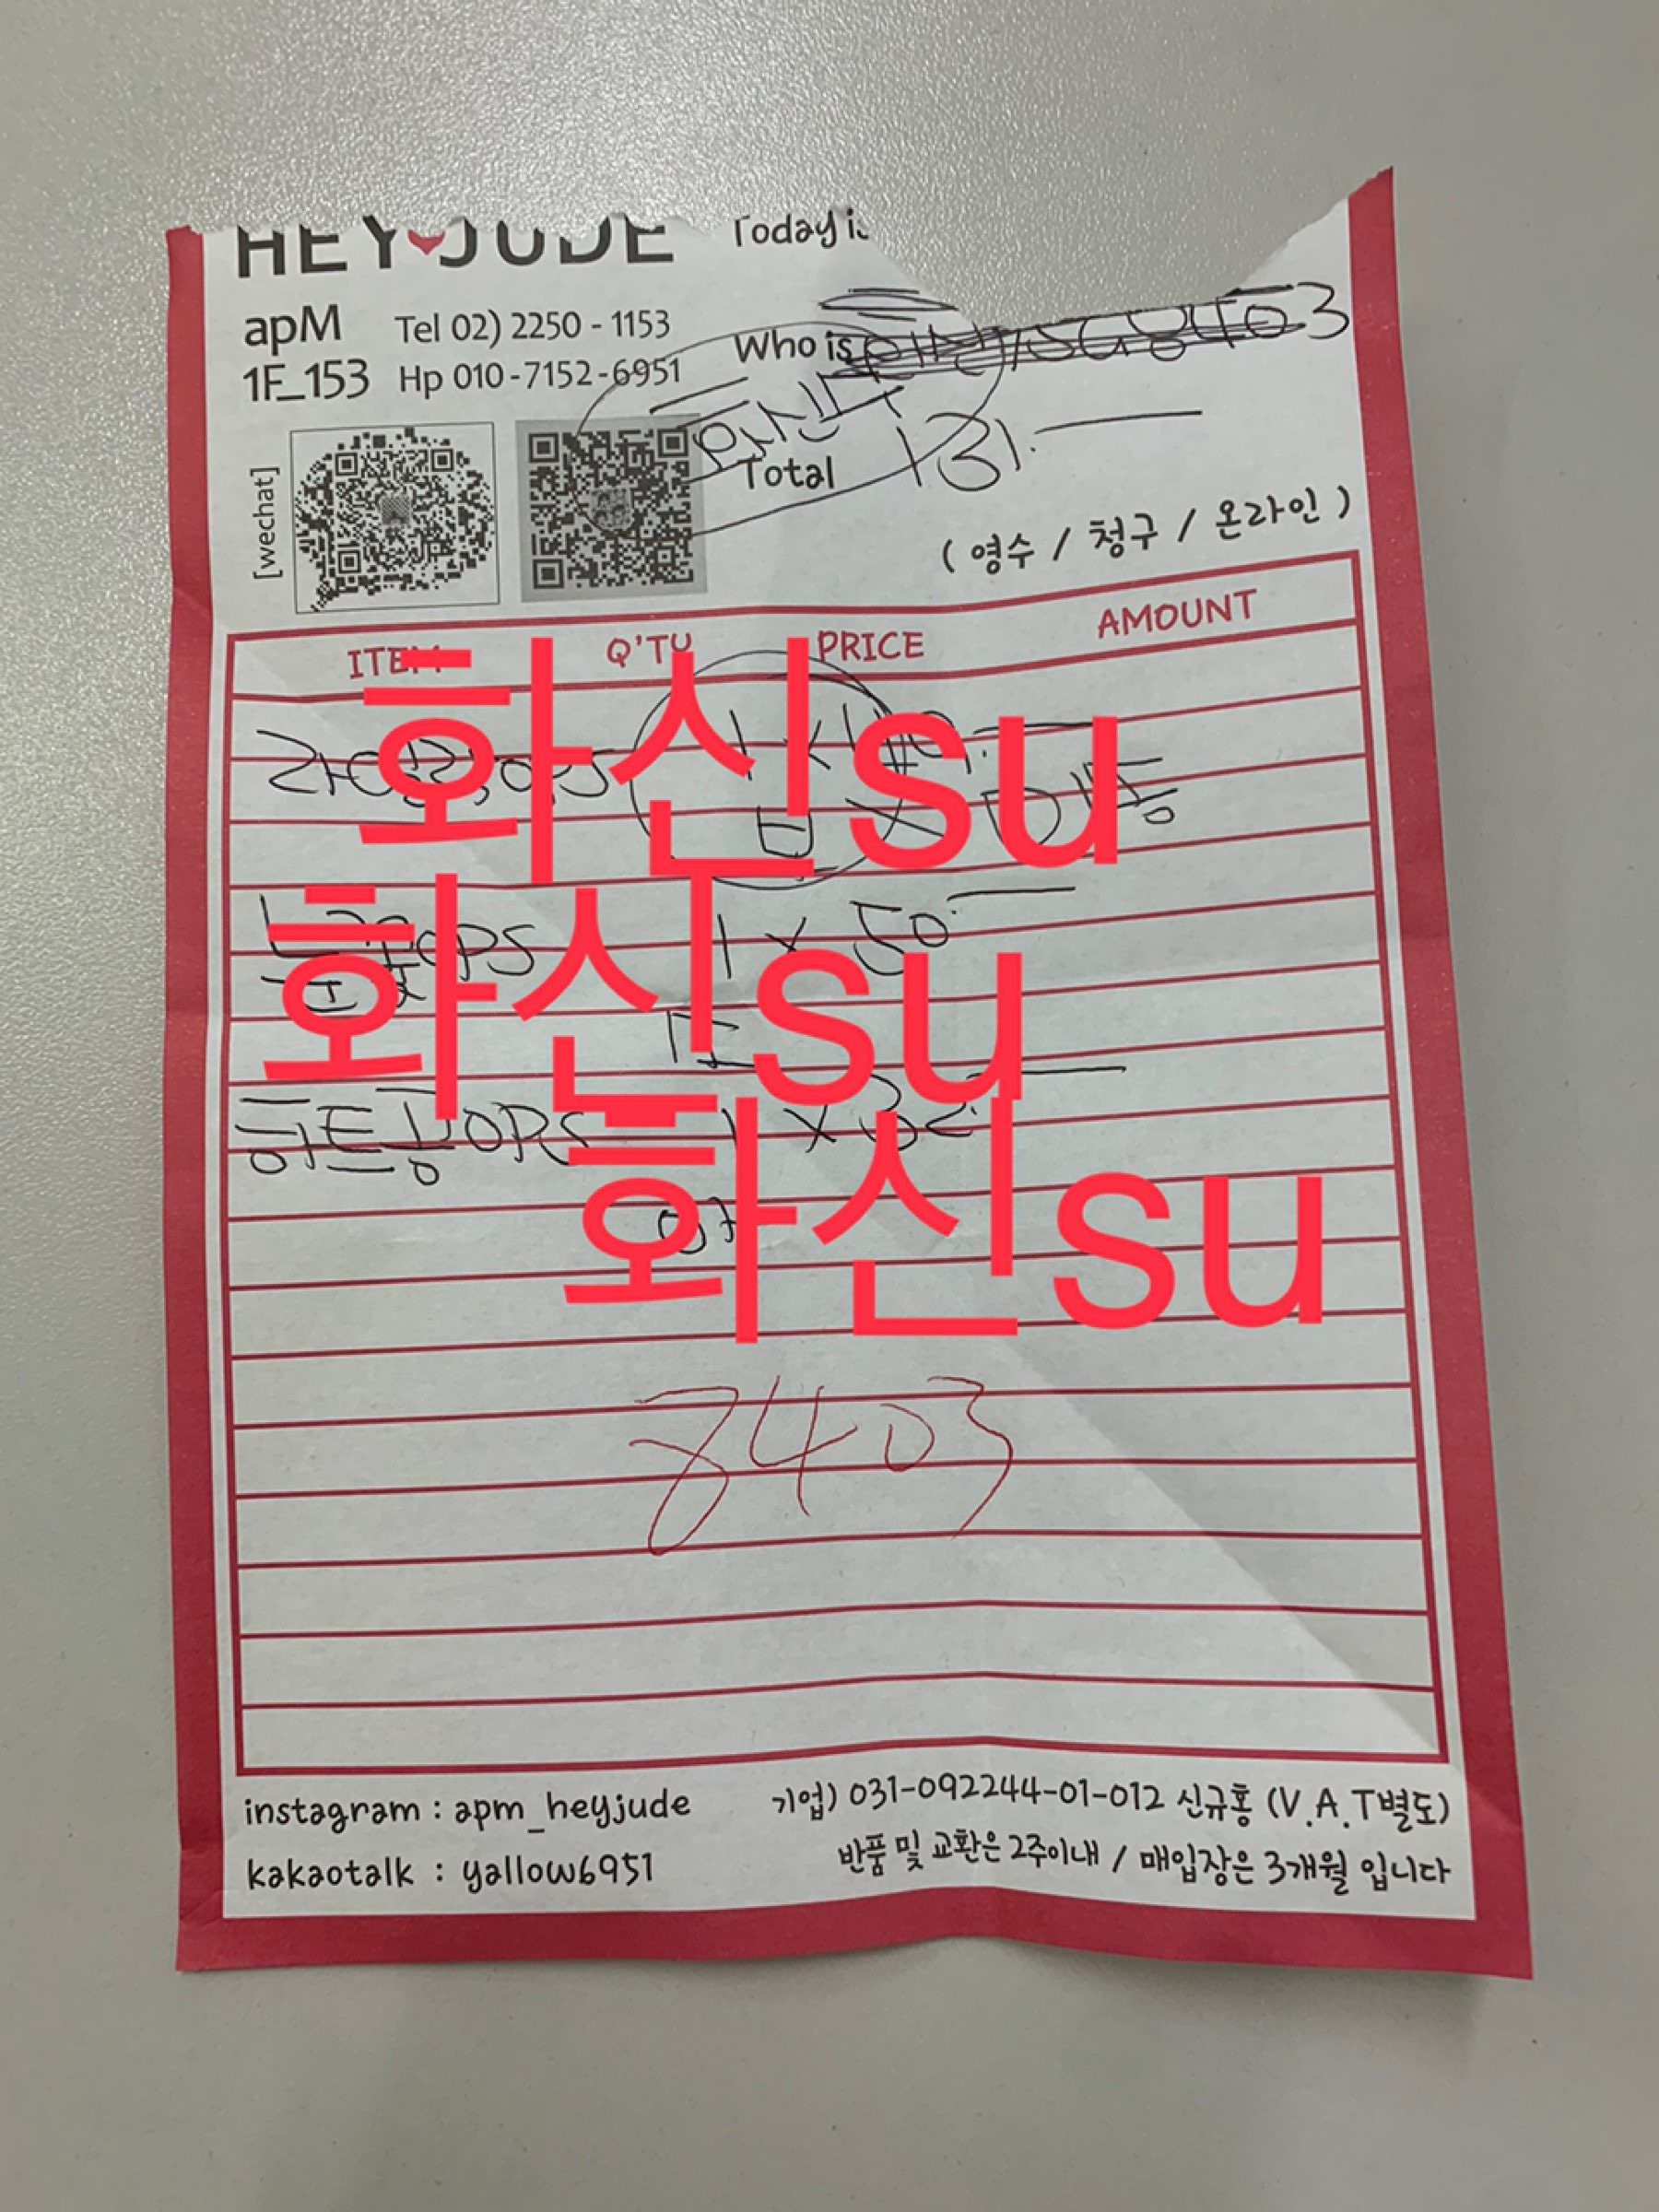 HEY JUDE
Today is
apM
Tel 02) 2250 - 1153
Who is
1F_153
Hp 010-7152-6951
화신
131.
Total
[wechat]
( 영수 / 청구 / 온라인 )
ITEM Q'TU PRICE AMOUNT
화신su
OPS 1 x 50
화신su
하트콩OPS 1 x 32
화신su
아
8403
instagram : apm_heyjude
kakaotalk : yallow6951
기업) 031-092244-01-012 신규홍 (V.A.T별도)
반품 및 교환은 2주이내 / 매입장은 3개월 입니다